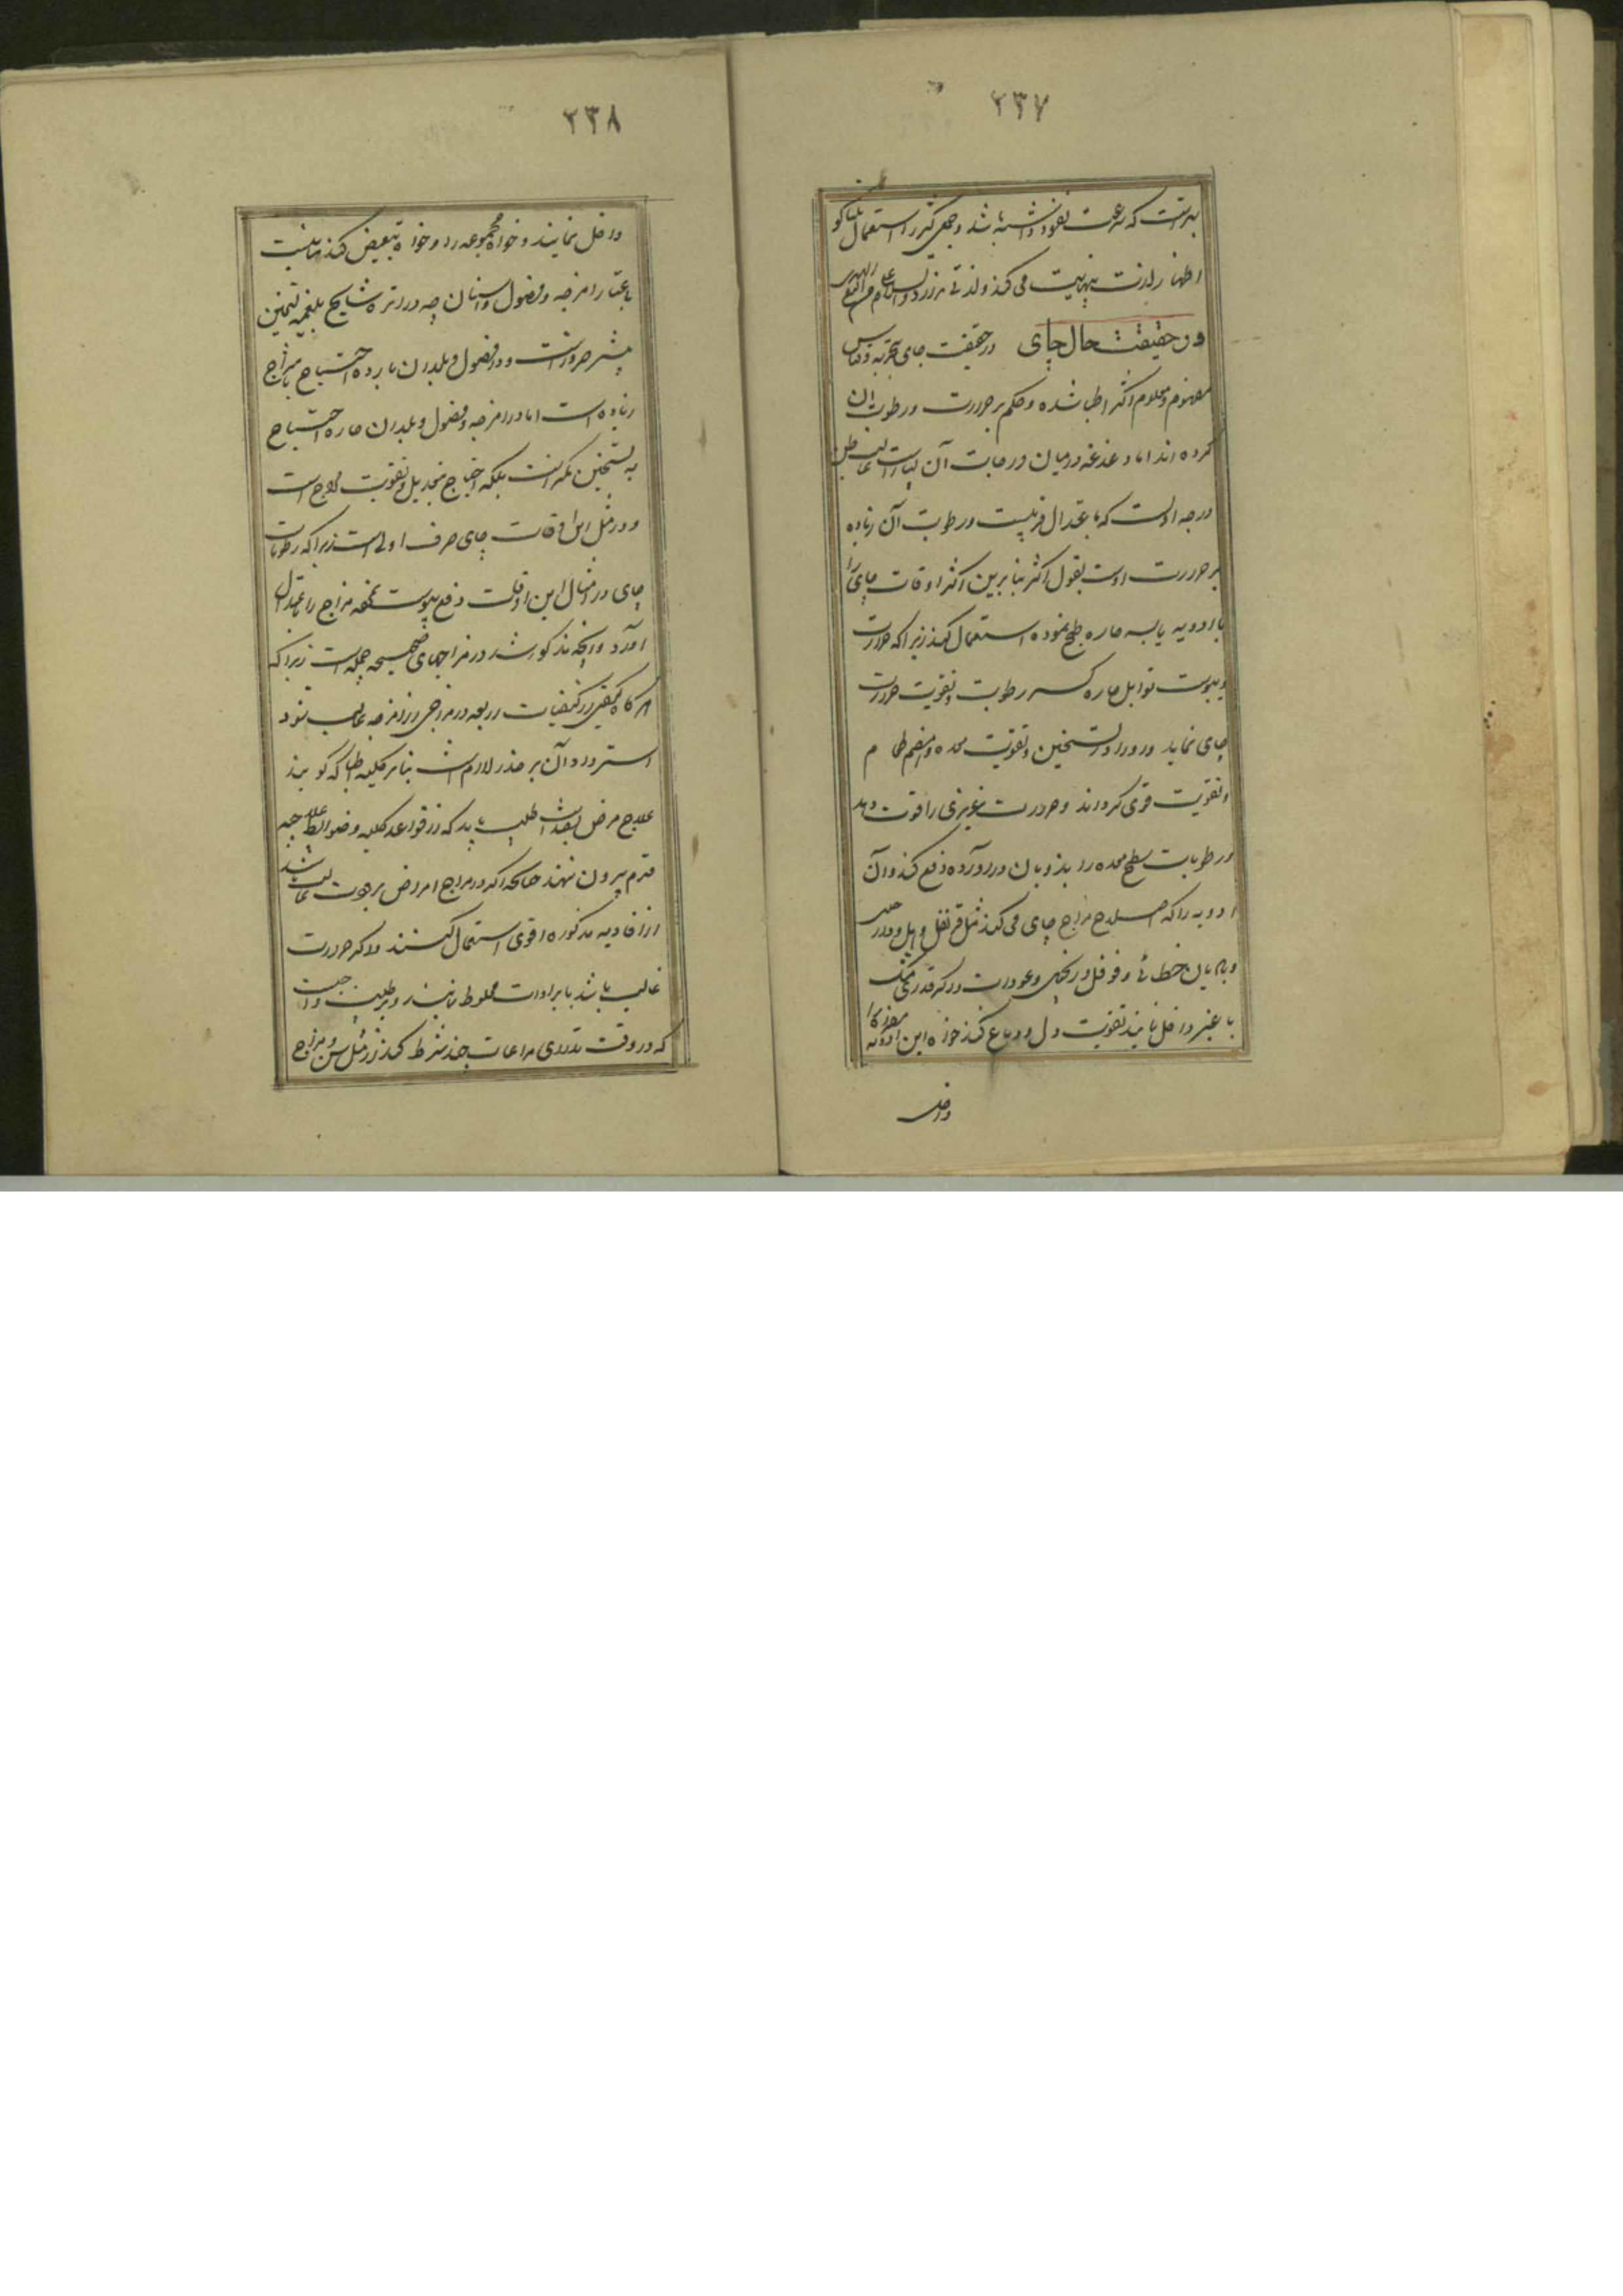 ۲۳۷
که سرعت نفوذ داشته باشد و جمعی کثیر را استعمال تنباکو
اظهار لذت بی‌نهایت می کند و لذتی
در حقیقت حال چای در حقیقت چای تجربه و قیاس
مفهوم و معلوم اکثر اطبا شده و حکم بر حرارت و رطوبت آن
کرده اند اما دغدغه در میان
درجه اولست که باعتدال قریبست و رطوبت آن زیاده
بر حرارت اوست بقول اکثر بنابرین اکثر اوقات چای را
با ادویه یابسه حاره طبخ نموده استعمال کنند زیرا که حرارت
و یبوست توابل حاره کسر رطوبت و تقویت حرارت
چای نماید و تسخین و تقویت معده و هضم طعام
و تقویت قوی کرداند و حرارت غریزی را قوت دهد
و رطوبات سطح معده را بذوبان درآورده دفع کند و آن
ادویه را که اصلاح مزاج چای می کند مثل قرنفل و هیل و دارچینی
و بادیان خطائی و فوفل و زنجبیل و عود است و اگر قدری مشک
یا عنبر داخل نمایند تقویت دل و دماغ کند خواه این ادویه
داخل
۲۳۸
داخل نمایند و خواه مجموعه را و خواه تبعیض کنند
باعتبار امزجه و فصول و اسنان چه در امزجه مشایخ بلغمیه تسخین
بیشتر ضرور است و در فصول و بلدان بارده احتیاج
زیاده است اما در امزجه و فصول و بلدان حاره احتیاج
به تسخین کمتر است بلکه احتیاج بتعدیل و تقویت مزاج است
و در مثل این اوقات چای صرف اولی است زیرا که رطوبات
چای در امثال این اوقات دفع یبوست نموده مزاج را باعتدال
آورد و آنچه مذکور شد در مزاجهای صحیحه جبلیه است زیرا که
هر گاه کیفیتی از کیفیات اربعه در مزاجی از امزجه غالب شود
استرداد آن بر ضد لازم است بنابر کلیه اطبا که گویند
علاج مرض بضد است طبیب باید که از قواعد کلیه و ضوابط علاجیه
قدم بیرون ننهند چنانچه اگر در مزاج امراض برودت غالب باشد
از افاویه مذکوره اقوی استعمال کنند و اگر حرارت
غالب باشد با برادات مخلوط نمایند و بر طبیب واجبست
که در وقت تداوی مراعات چند شرط کند از مثل سن و مزاج